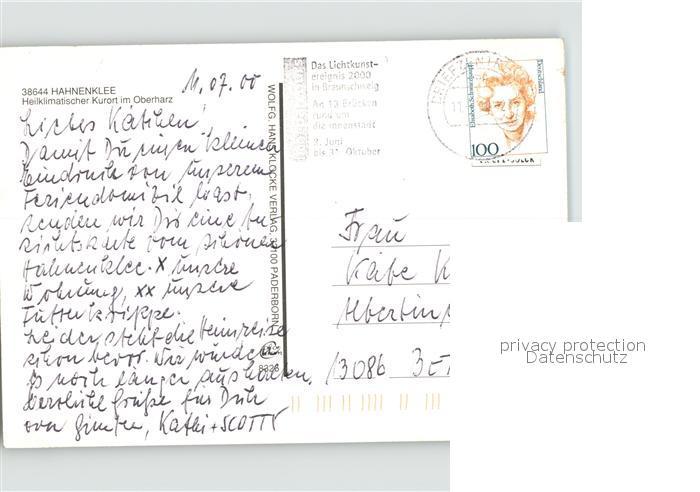 38644 HAHNENKLEE
Heilklimatischer Kurort im Oberharz
11.07.00
Liebes Käthchen,
Damit Du einen kleinen
Eindruck von unserem
Feriendomizil hast,
senden wir Dir eine An-
sichtskarte vom schönen
Hahnenklee. X unsere
Wohnung, xx unsere
Futterkrippe.
Leider steht die Heimreise
schon bevor. Wir würden
es noch länger aushalten.
Herzliche Grüße für Dich
von Günter, Kathi + SCOTTY
WOLFG. HANS KLOCKE VERLAG, 33100 PADERBORN
8326
Das Lichtkunst-
ereignis 2000
in Braunschweig
An 13 Brücken
rund um
die Innenstadt
bis 31. Oktober
Deutschland
100
Frau
Käbe K
13086
privacy protection
Datenschutz